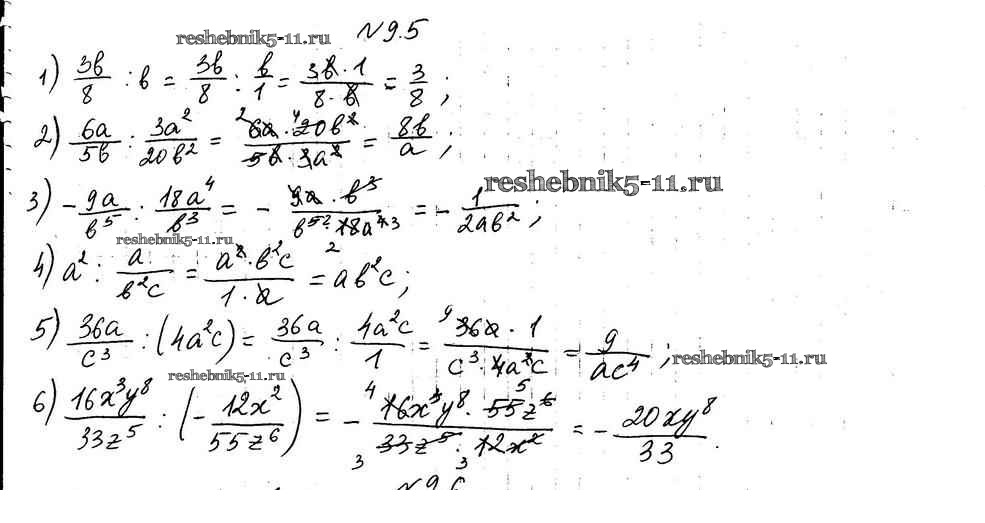 reshebnik5-11.ru №9.5
1) 3в/8 : в = 3в/8 : в/1 = 3в·1/8·в = 3/8 ;
2) 6a/5в : 3a²/20в² = ²6a·⁴20в²/5в·3a² = 8в/a ;
reshebnik5-11.ru
3) -9a/в⁵ : 18a⁴/в³ = - 9a·в³/в⁵ ²·18a⁴ ³ = - 1/2aв² ;
reshebnik5-11.ru
4) a² : a/в²c = a²·в²c/1·a = aв²c ;
5) 36a/c³ : (4a²c) = 36a/c³ : 4a²c/1 = ⁹36a·1/c³·4a²c = 9/ac⁴ ;
reshebnik5-11.ru
reshebnik5-11.ru
6) 16x³y⁸/33z⁵ : (- 12x²/55z⁶) = - ⁴16x³y⁸·⁵55z⁶/₃33z⁵·₃12x² = - 20xy⁸/33 .